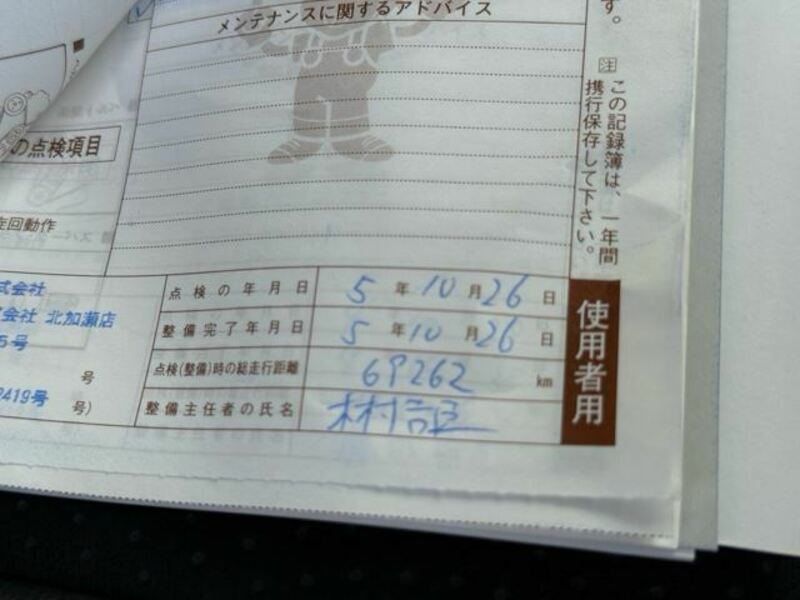 メンテナンスに関するアドバイス
す。
注 この記録簿は、一年間
携行保存して下さい。
の点検項目
左回動作
式会社
会社 北加瀬店
5号
号
2419号 号)
点検の年月日 5年10月26日
整備完了年月日 5年10月26日
点検(整備)時の総走行距離 69262 km
整備主任者の氏名
使用者用